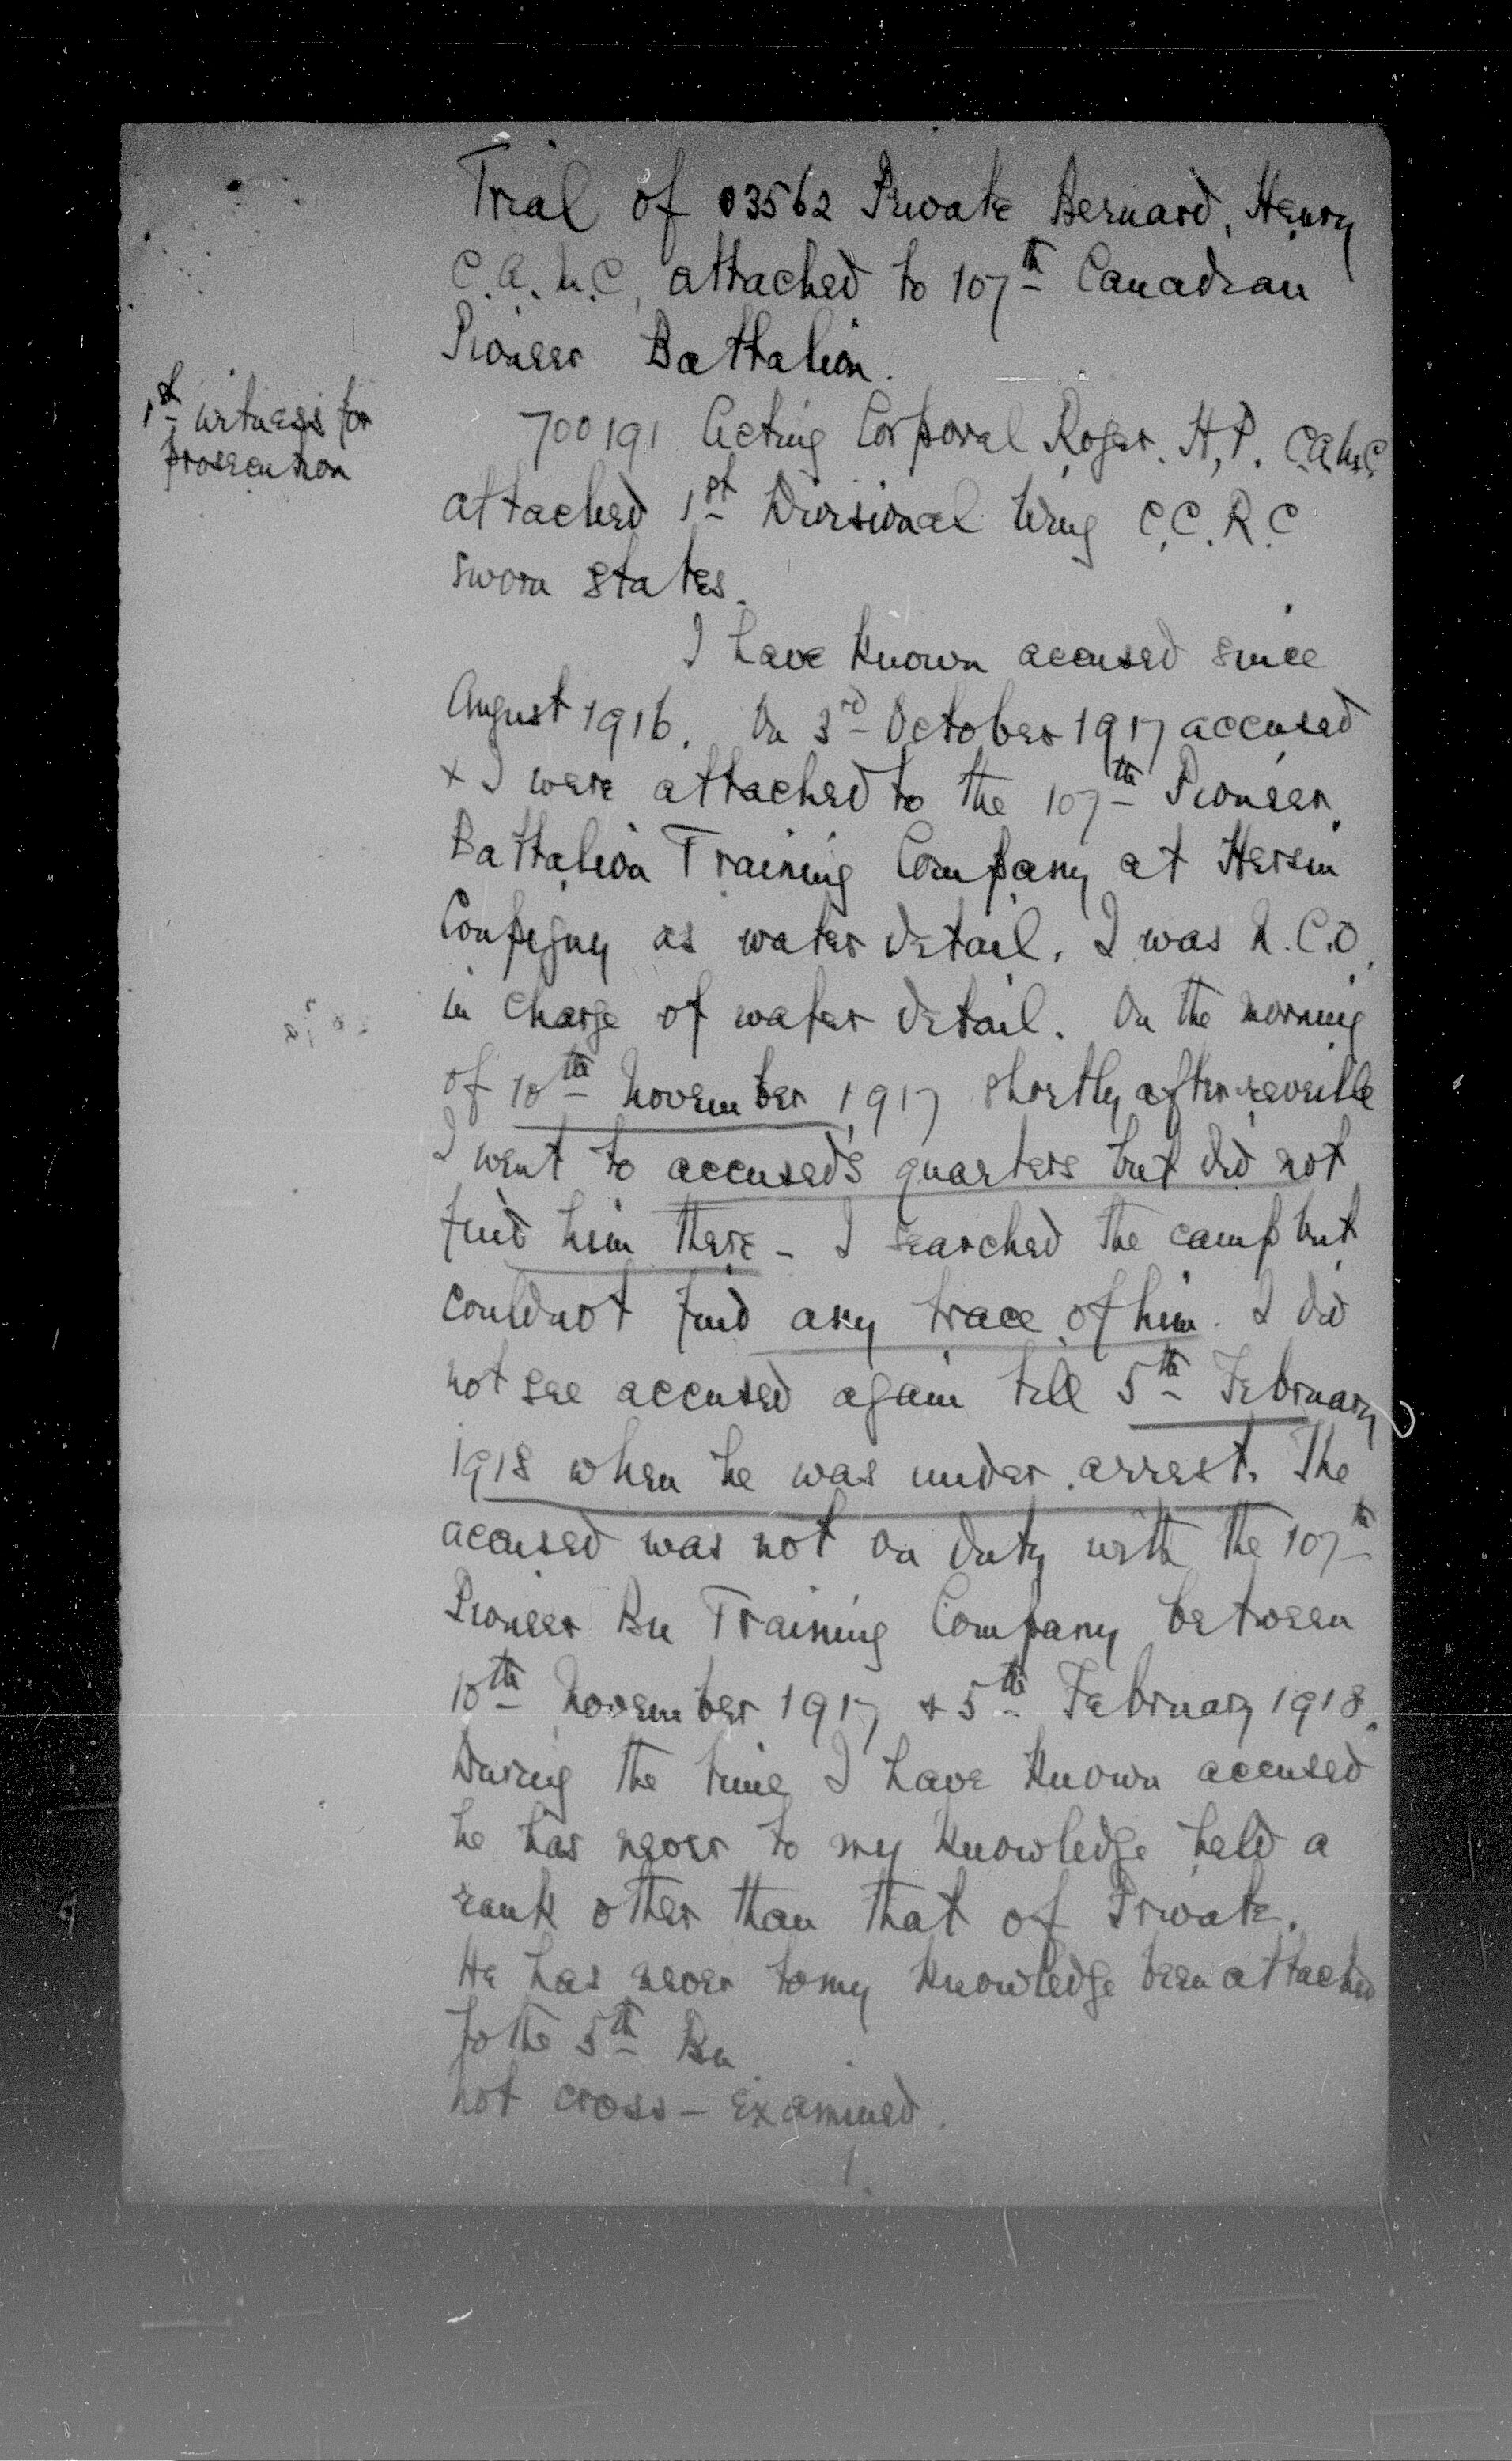 Trial of 03562 Private Bernard, Henry
C.A.M.C, attached to 107th Canadian
Pioneer Battalion.
1st witness for
prosecution
700191 Acting Corporal Roger. H.P. C.A.M.C.
attached 1st Divisional Wing C.C.R.C
sworn states.
I have known accused since
August 1916. On 3rd October 1917 accused
+ I were attached to the 107th Pioneer
Battalion Training Company at Hersin
Coupigny as water detail. I was N.C.O.
in charge of water detail. On the morning
of 10th November 1917 shortly after reveille
I went to accused's quarters but did not
find him there - I searched the camp but
could not find any trace of him. I did
not see accused again till 5th February
1918 when he was under arrest. The
accused was not on duty with the 107th
Pioneer Bn Training Company between
10th November 1917 + 5th February 1918.
During the time I have known accused
he has never to my knowledge held a
rank other than that of Private.
He has never to my knowledge been attached
to the 5th Bn
Not cross-examined.
1.